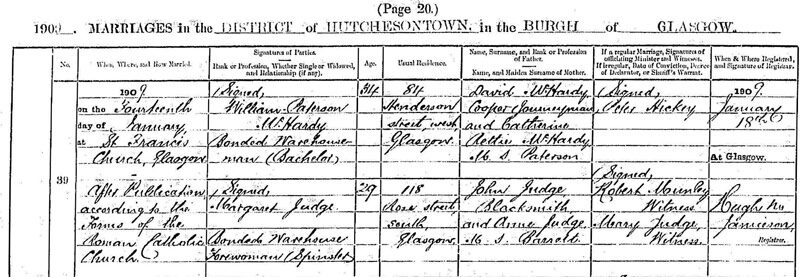 (Page 20.)
1909. MARRIAGES in the DISTRICT of HUTCHESONTOWN. in the BURGH of GLASGOW.
No.
When, Where, and How Married.
Signatures of Parties.
Rank or Profession, Whether Single or Widowed,
and Relationship (if any).
Age.
Usual Residence.
Name, Surname, and Rank or Profession
of Father.
Name, and Maiden Surname of Mother.
If a regular Marriage, Signatures of
officiating Minister and Witnesses.
If irregular, Date of Conviction, Decree
of Declarator, or Sheriff's Warrant.
When & Where Registered,
and Signature of Registrar.
39
1909
on the Fourteenth
day of January
at St Francis
Church, Glasgow
After Publication
according to the
Forms of the
Roman Catholic
Church.
(Signed,
William Paterson
McHardy
Bonded Warehouse-
man (Bachelor)
(Signed,
Margaret Judge
Bonded Warehouse
Forewoman (Spinster)
34
29
84
Henderson
street, west,
Glasgow
118
Rose street,
south,
Glasgow
David McHardy
Cooper (Journeyman)
and Catherine
McHardy
M. S. Paterson
John Judge
Blacksmith
and Anne Judge
M. S. Barrett
(Signed,
Peter Hickey
(Signed,
Robert Munley
Witness
Mary Judge,
Witness.
1909.
January
18th
At Glasgow.
Hugh
Jamieson
Registrar.